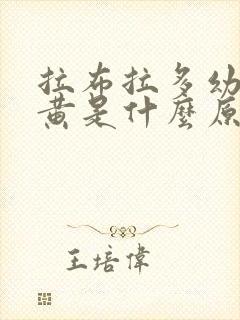 拉布拉多幼
黄是什麼原
王培偉